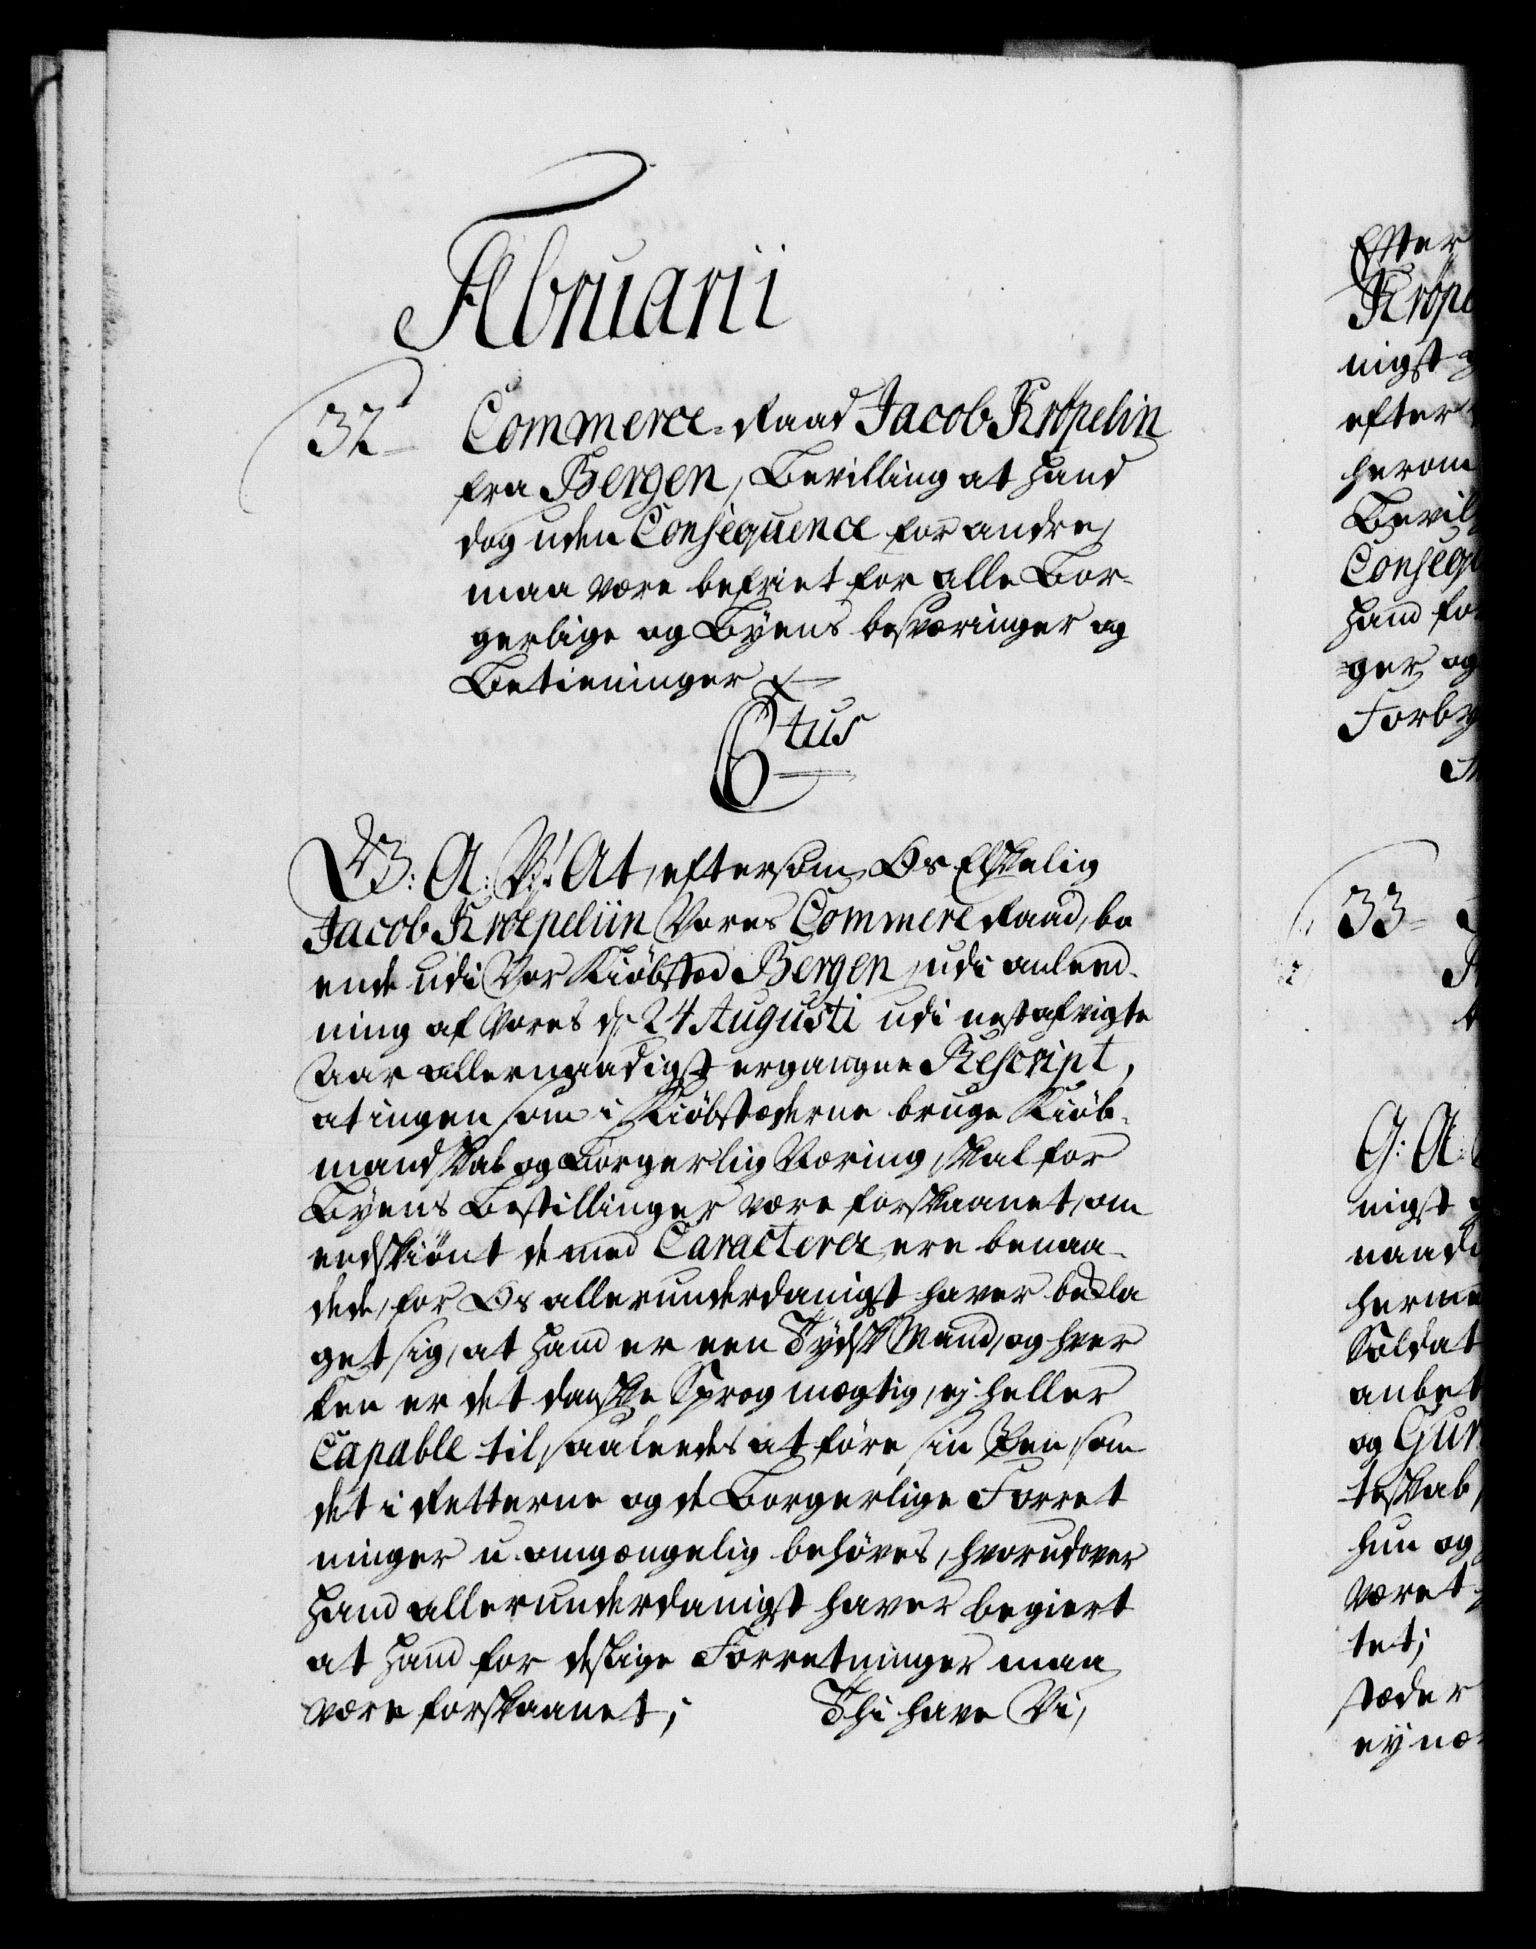 Februarii
32 Commerce-Raad Jacob Kröpelin
fra Bergen, Bevilling at hand
dog uden Consequence for andre,
maa være befriet for alle Bor-
gerlige og Byens besværinger og
Betieninger
6tus
V: A: V: At, eftersom Os Elskelig
Jacob Kröepeliin Vores Commerce Raad, bo
ende udi Vor Kiöbsted Bergen, udi anleed-
ning af Vores d. 24 Augusti udi nestafvigte
Aar allernaadigst ergangne Rescript,
at ingen som i Kiöbstæderne bruge Kiöb-
mandskab og Borgerlig Næring, skal for
Byens Bestillinger være forskaanet, om
endskiönt de med Caracterer ere benaa-
dede, for Os allerunderdanigst haver bekla
get sig, at hand er een Tydsk Mand, og hver
ken er det danske Sprog mægtig, ej heller
Capable til saaledes at före sin Pen som
det i Retterne og de Borgerlige Forret
ninger u-omgængelig behöves, hvorudover
hand allerunderdanigst haver begiert
at hand for deslige Forretninger maa
være forskaanet; Thi have Vi,
Efter
Kröpe
nigst
efter
herom
Bevil
Conseq
hand for
ger og
Forby
33
G: A:
nigst
naadi
herme
Soldat
anbet
og Gur
teskab,
hun og
været
tet;
stæder
ey næ